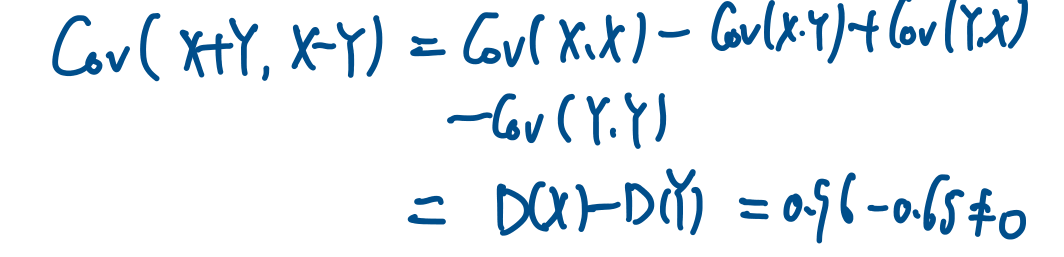 Cov(X+Y, X-Y) = Cov(X,X) - Cov(X,Y) + Cov(Y,X)
-Cov(Y,Y)
= D(X)-D(Y) = 0.56-0.65≠0